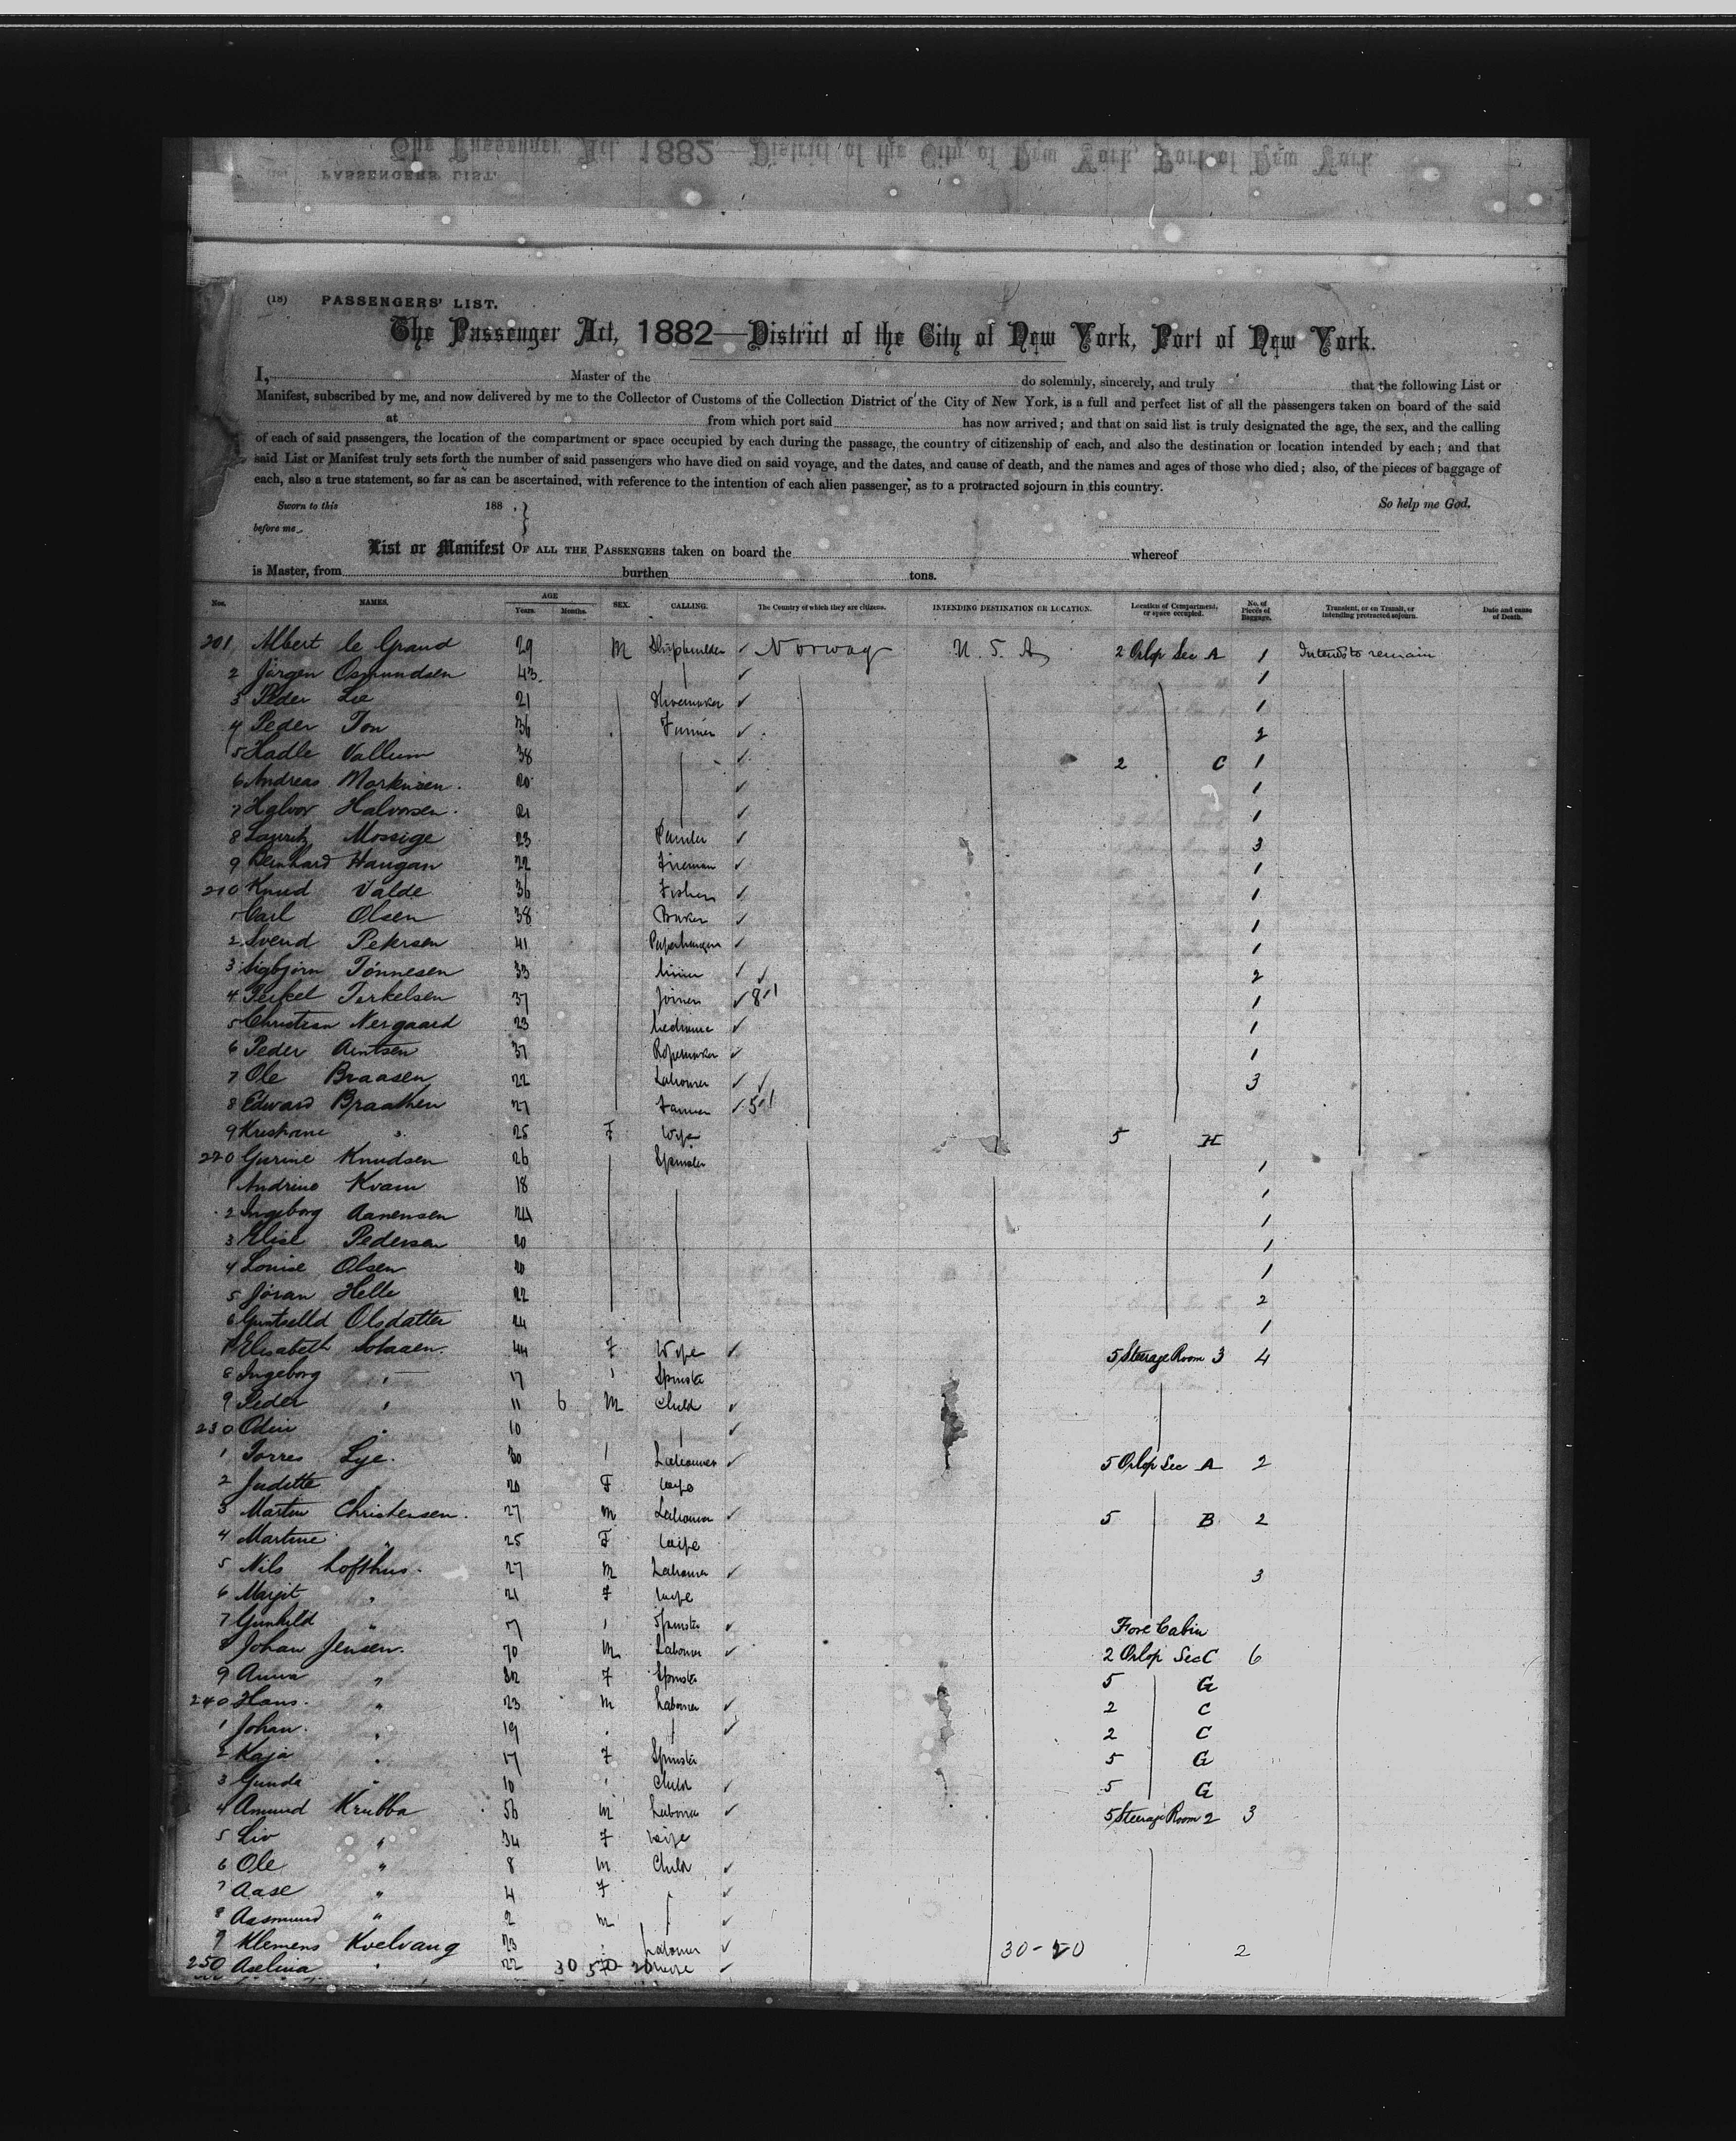 (18) PASSENGERS' LIST.
The Passenger Act, 1882—District of the City of New York, Port of New York.
I, Master of the do solemnly, sincerely, and truly that the following List or
Manifest, subscribed by me, and now delivered by me to the Collector of Customs of the Collection District of the City of New York, is a full and perfect list of all the passengers taken on board of the said
at from which port said has now arrived; and that on said list is truly designated the age, the sex, and the calling
of each of said passengers, the location of the compartment or space occupied by each during the passage, the country of citizenship of each, and also the destination or location intended by each; and that
said List or Manifest truly sets forth the number of said passengers who have died on said voyage, and the dates, and cause of death, and the names and ages of those who died; also, of the pieces of baggage of
each, also a true statement, so far as can be ascertained, with reference to the intention of each alien passenger, as to a protracted sojourn in this country.
Sworn to this 188 . } So help me God.
before me
List or Manifest OF ALL THE PASSENGERS taken on board the whereof
is Master, from burthen tons.
Nos. NAMES. AGE Years. Months. SEX. CALLING. The Country of which they are citizens. INTENDING DESTINATION OR LOCATION. Location of Compartment, or space occupied. No. of Pieces of Baggage. Transient, or on Transit, or intending protracted sojourn. Date and cause of Death.
201 Albert le Grand 29 M Shipbuilder Norway U. S. A 2 Orlop Sec A 1 Intends to remain
2 Jörgen Osmundsen 43 1
3 Peder Lie 21 Shoemaker 1
4 Peder Ton 36 Farmer 2
5 Hadle Vallum 38 2 C 1
6 Andreas 20 1
7 Halvor Halvorsen 21 1
8 Lauritz Mossige 23 3
9 Bernhard Haugan 22 Fireman 1
210 Knud Valde 36 Fisher 1
1 Carl Olsen 38 Baker 1
2 Svend Petersen 41 Paperhanger 1
3 Sigbjörn Tönnesen 33 2
4 Terkel Terkelsen 37 Joiner 8/1 1
5 Christian Nergaard 23 1
6 Peder Arntsen 37 Ropemaker 1
7 Ole Braasen 22 Labourer 3
8 Edward Braathen 27 Farmer 5/1
9 Kristiane " 25 F Wife 5 H
220 Gurine Knudsen 26 Spinster 1
1 Andrine Kvam 18 1
2 Ingeborg Aanensen 24 1
3 Elise Pedersen 20 1
4 Louise Olsen 20 1
5 Jöran Helle 22 2
6 Olsdatter 24 1
7 Elisabeth 44 F Wife 5 Steerage Room 3 4
8 Ingeborg " 17 Spinster
9 Peder " 11 6 M Child
230 Odin " 10
1 Torres Lye. 30 Labourer 5 Orlop Sec A 2
2 Juditte " 20 F Wife
3 Martin Christensen. 27 M Labourer 5 B 2
4 Martine " 25 F Wife
5 Nils Lofthus. 27 M Labourer 3
6 Margit " 21 F Wife
7 Gunhild " Spinster Fore Cabin
8 Johan Jensen. 70 M Labourer 2 Orlop Sec C 6
9 Anna " 32 F Spinster 5 G
240 Hans. " 23 M Labourer 2 C
1 Johan. " 19 2 C
2 Kaja " 17 F Spinster 5 G
3 Gunda " 10 Child 5 G
4 Amund Krubba 56 M Labourer 5 Steerage Room 2 3
5 Liv " 34 F Wife
6 Ole " 8 M Child
7 Aase " 4 F
8 Aasmund " 2 M
9 Klemens Kvelvang 23 Labourer 30-20 2
250 Aselina " 22 30 50-20 Wife